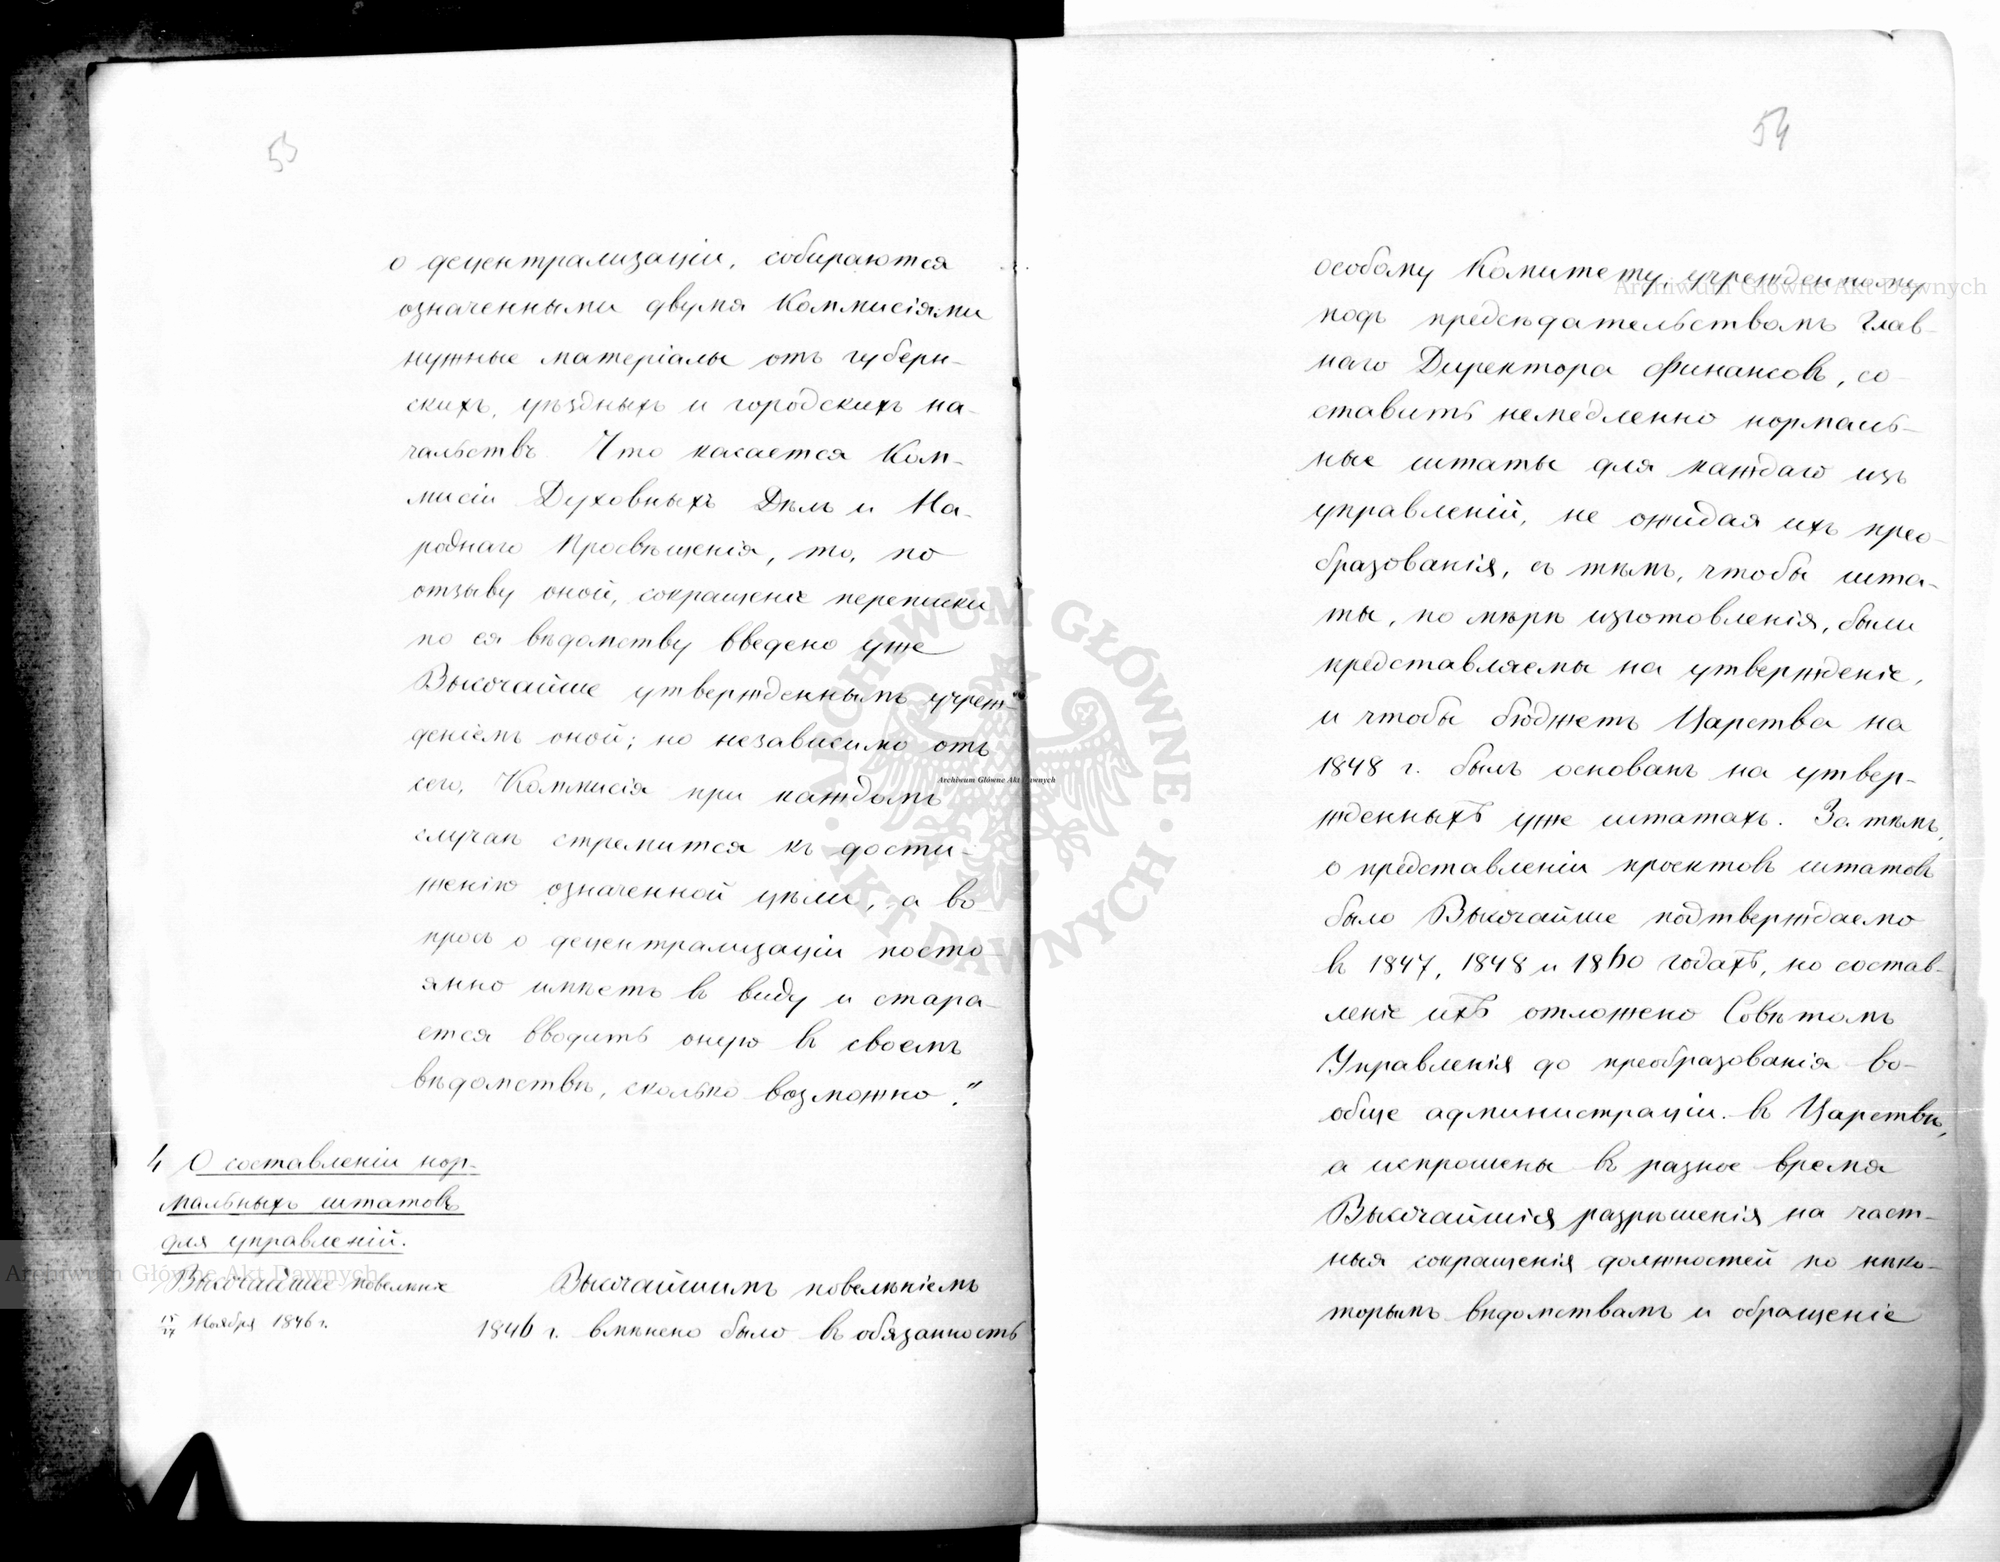 53
о децентрализаціи, собираются
означенными двумя Коммисіями
нужные матеріалы отъ губерн-
скихъ, уѣздныхъ и городскихъ на-
чальствъ. Что касается Ком-
мисіи Духовныхъ Дѣлъ и На-
роднаго Просвѣщенія, то, по
отзыву оной, сокращеніе переписки
по ея вѣдомству введено уже
Высочайше утвержденнымъ учреж-
деніемъ оной; но независимо отъ
сего, Коммисія при каждомъ
случаѣ стремится къ дости-
женію означенной цѣли, а во-
просъ о децентрализаціи посто-
янно имѣетъ въ виду и стара-
ется вводить оную въ своемъ
вѣдомствѣ, сколько возможно."
4 О составленіи нор-
мальныхъ штатовъ
для управленій.
Высочайшее повелѣніе
15/27 Ноября 1846 г.
Высочайшимъ повелѣніемъ
1846 г. вмѣнено было въ обязанность
54
особому Комитету, учрежденному
подъ предсѣдательствомъ Глав-
наго Директора Финансовъ, со-
ставить немедленно нормаль-
ные штаты для каждаго изъ
управленій, не ожидая ихъ прео-
бразованія, съ тѣмъ, чтобы шта-
ты, по мѣрѣ изготовленія, были
представляемы на утвержденіе,
и чтобы бюджетъ Царства на
1848 г. былъ основанъ на утвер-
жденныхъ уже штатахъ. За тѣмъ,
о представленіи проектовъ штатовъ
было Высочайше подтверждаемо
въ 1847, 1848 и 1860 годахъ, но состав-
леніе ихъ отложено Совѣтомъ
Управленія до преобразованія во-
обще администраціи въ Царствѣ,
а испрошены въ разное время
Высочайшія разрѣшенія на част-
ныя сокращенія должностей по нѣко-
торымъ вѣдомствамъ и обращеніе
Archiwum Główne Akt Dawnych
Archiwum Główne Akt Dawnych
Archiwum Główne Akt Dawnych
ARCHIWUM GŁÓWNE · AKT DAWNYCH ·